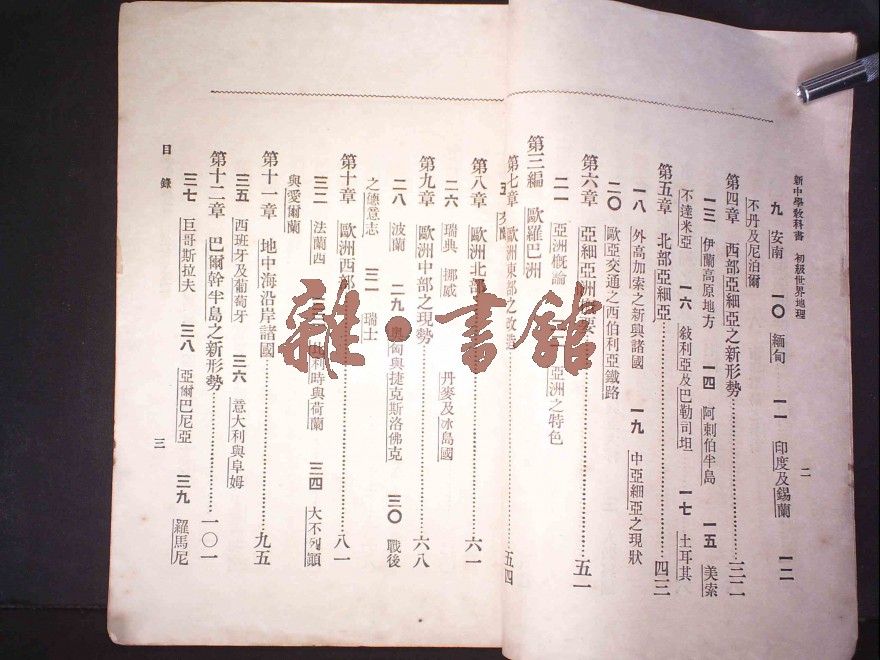 新中學教科書 初級世界地理
二
九 安南 一〇 緬甸 一一 印度及錫蘭 一二
不丹及尼泊爾
第四章 西部亞細亞之新形勢 三二
一三 伊蘭高原地方 一四 阿剌伯半島 一五 美索
不達米亞 一六 敍利亞及巴勒司坦 一七 土耳其
第五章 北部亞細亞 四三
一八 外高加索之新興諸國 一九 中亞細亞之現狀
二〇 歐亞交通之西伯利亞鐵路
第六章 亞細亞洲 五一
二一 亞洲概論 亞洲之特色
第三編 歐羅巴洲
第七章 歐洲東部之改造 五四
第八章 歐洲北部 六一
二六 瑞典 挪威 丹麥及冰島國
第九章 歐洲中部之現勢 六八
二八 波蘭 二九 奧匈與捷克斯洛佛克 三〇 戰後
之德意志 三一 瑞士
第十章 歐洲西部 八一
三二 法蘭西 三三 比利時與荷蘭 三四 大不列顛
與愛爾蘭
第十一章 地中海沿岸諸國 九五
三五 西班牙及葡萄牙 三六 意大利與阜姆
第十二章 巴爾幹半島之新形勢 一〇一
三七 巨哥斯拉夫 三八 亞爾巴尼亞 三九 羅馬尼
目錄
三
雜·書館